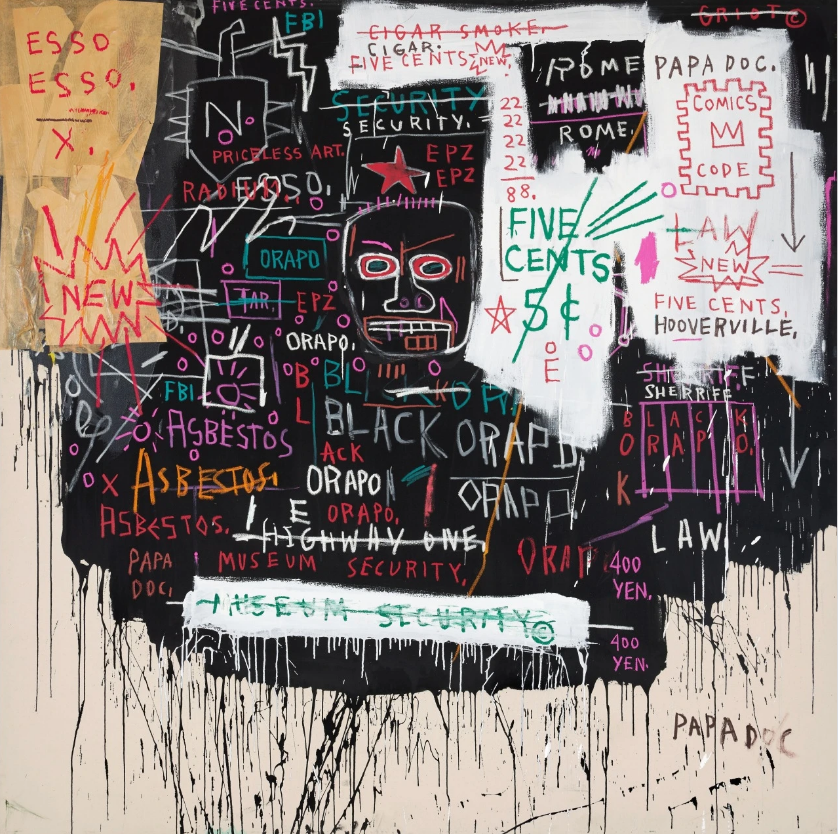 FIVE CENTS.
FBI
GRIOT©
ESSO
ESSO.
X.
NEW
N.
PRICELESS ART.
RADIUM.
ESSO.
CIGAR SMOKE.
CIGAR.
FIVE CENTS
NEW.
SECURITY
SECURITY.
EPZ
EPZ
22
22
22
22
88.
ROME
ROME.
PAPA DOC.
COMICS
CODE
LAW
NEW
FIVE CENTS.
HOOVERVILLE.
FIVE
CENTS
5¢
O
E
ORAPO
TAR.
EPZ
ORAPO.
FBI
ASBESTOS
X ASBESTOS.
ASBESTOS.
B
L
BL
BLACK ORAP
ACK
ORAPO
ORAPO
E
ORAPO.
HIGHWAY ONE.
SHERRIFF
SHERRIFF
B L A C K
O R A P O.
K
LAW
PAPA
DOC.
MUSEUM SECURITY.
ORAP
400
YEN.
MUSEUM SECURITY©
400
YEN.
PAPA DOC